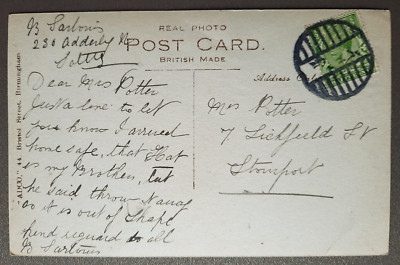 B Sartoris
230 Adderly R
REAL PHOTO
POST CARD.
BRITISH MADE.
Address Only
"AIDO," 44, Bristol Street, Birmingham.
Dear Mrs Potter
Just a line to let
you know I arrived
home safe, that Hat
is my Brothers, but
he said throw
as it is out of Shape
kind reguard to all
B Sartoris
Mrs Potter
7 Lichfield St
Stourport